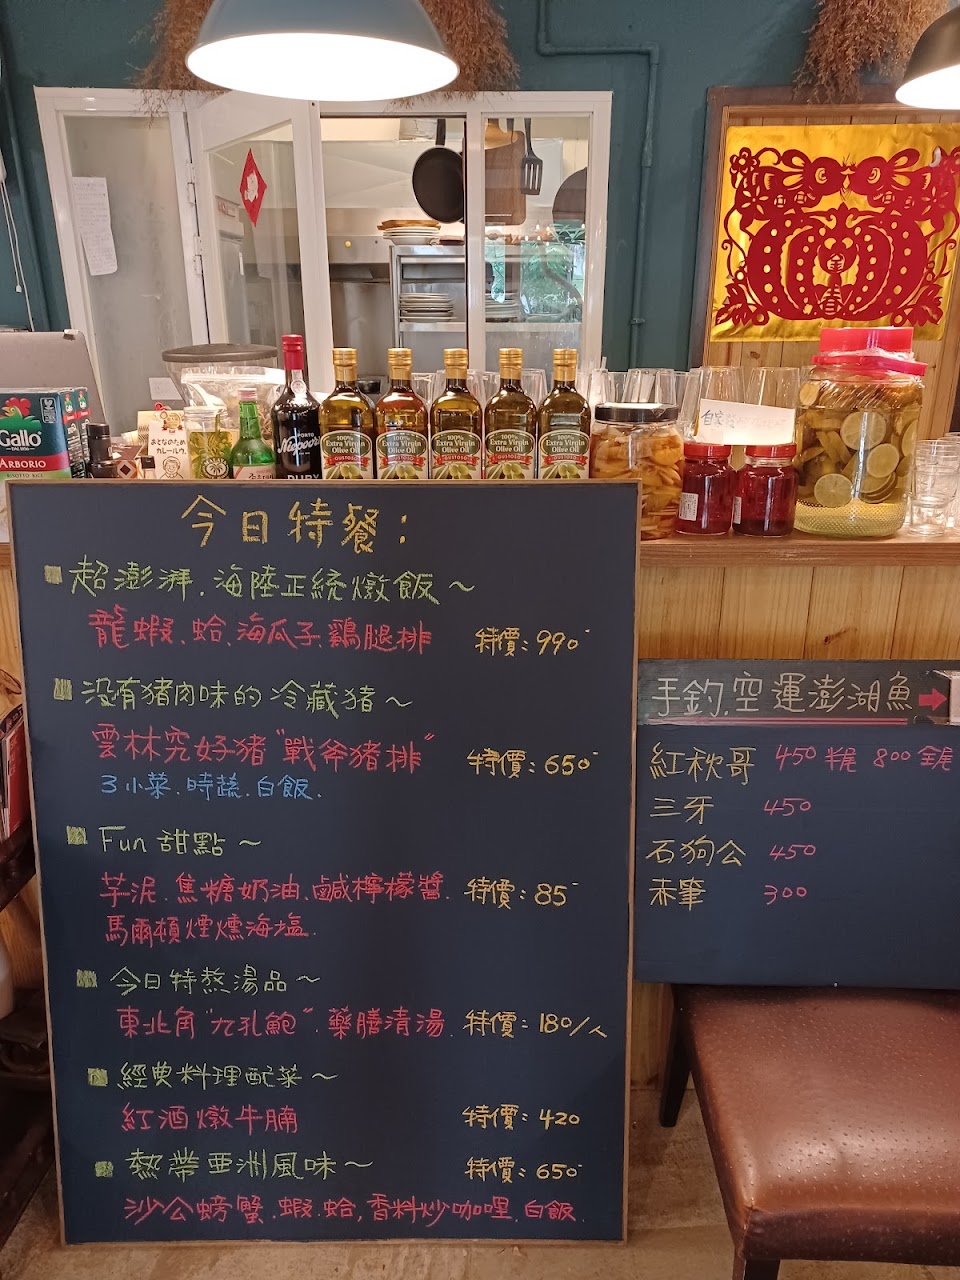 Gallo
ARBORIO
おとなのための
カレールウ
PORTO
RUBY
100%
Extra Virgin
Olive Oil
GUSTOSO
100%
Extra Virgin
Olive Oil
GUSTOSO
100%
Extra Virgin
Olive Oil
GUSTOSO
100%
Extra Virgin
Olive Oil
GUSTOSO
100%
Extra Virgin
Olive Oil
GUSTOSO
自家
今日特餐:
超澎湃.海陸正統燉飯~
龍蝦、蛤、海瓜子、鷄腿排 特價:990
没有猪肉味的冷藏猪~
雲林究好猪"戰斧猪排" 特價:650
3小菜.時蔬.白飯.
Fun 甜點~
芋泥.焦糖奶油、鹹檸檬醬. 特價:85
馬爾頓煙燻海塩.
今日特熬湯品~
東北角"九孔鮑".藥膳清湯. 特價:180/人
經典料理配菜~
紅酒燉牛腩 特價:420
熱帶亞洲風味~ 特價:650
沙公螃蟹.蝦.蛤,香料炒咖哩.白飯.
手釣.空運澎湖魚→
紅秋哥 450半尾 800全尾
三牙 450
石狗公 450
赤筆 300